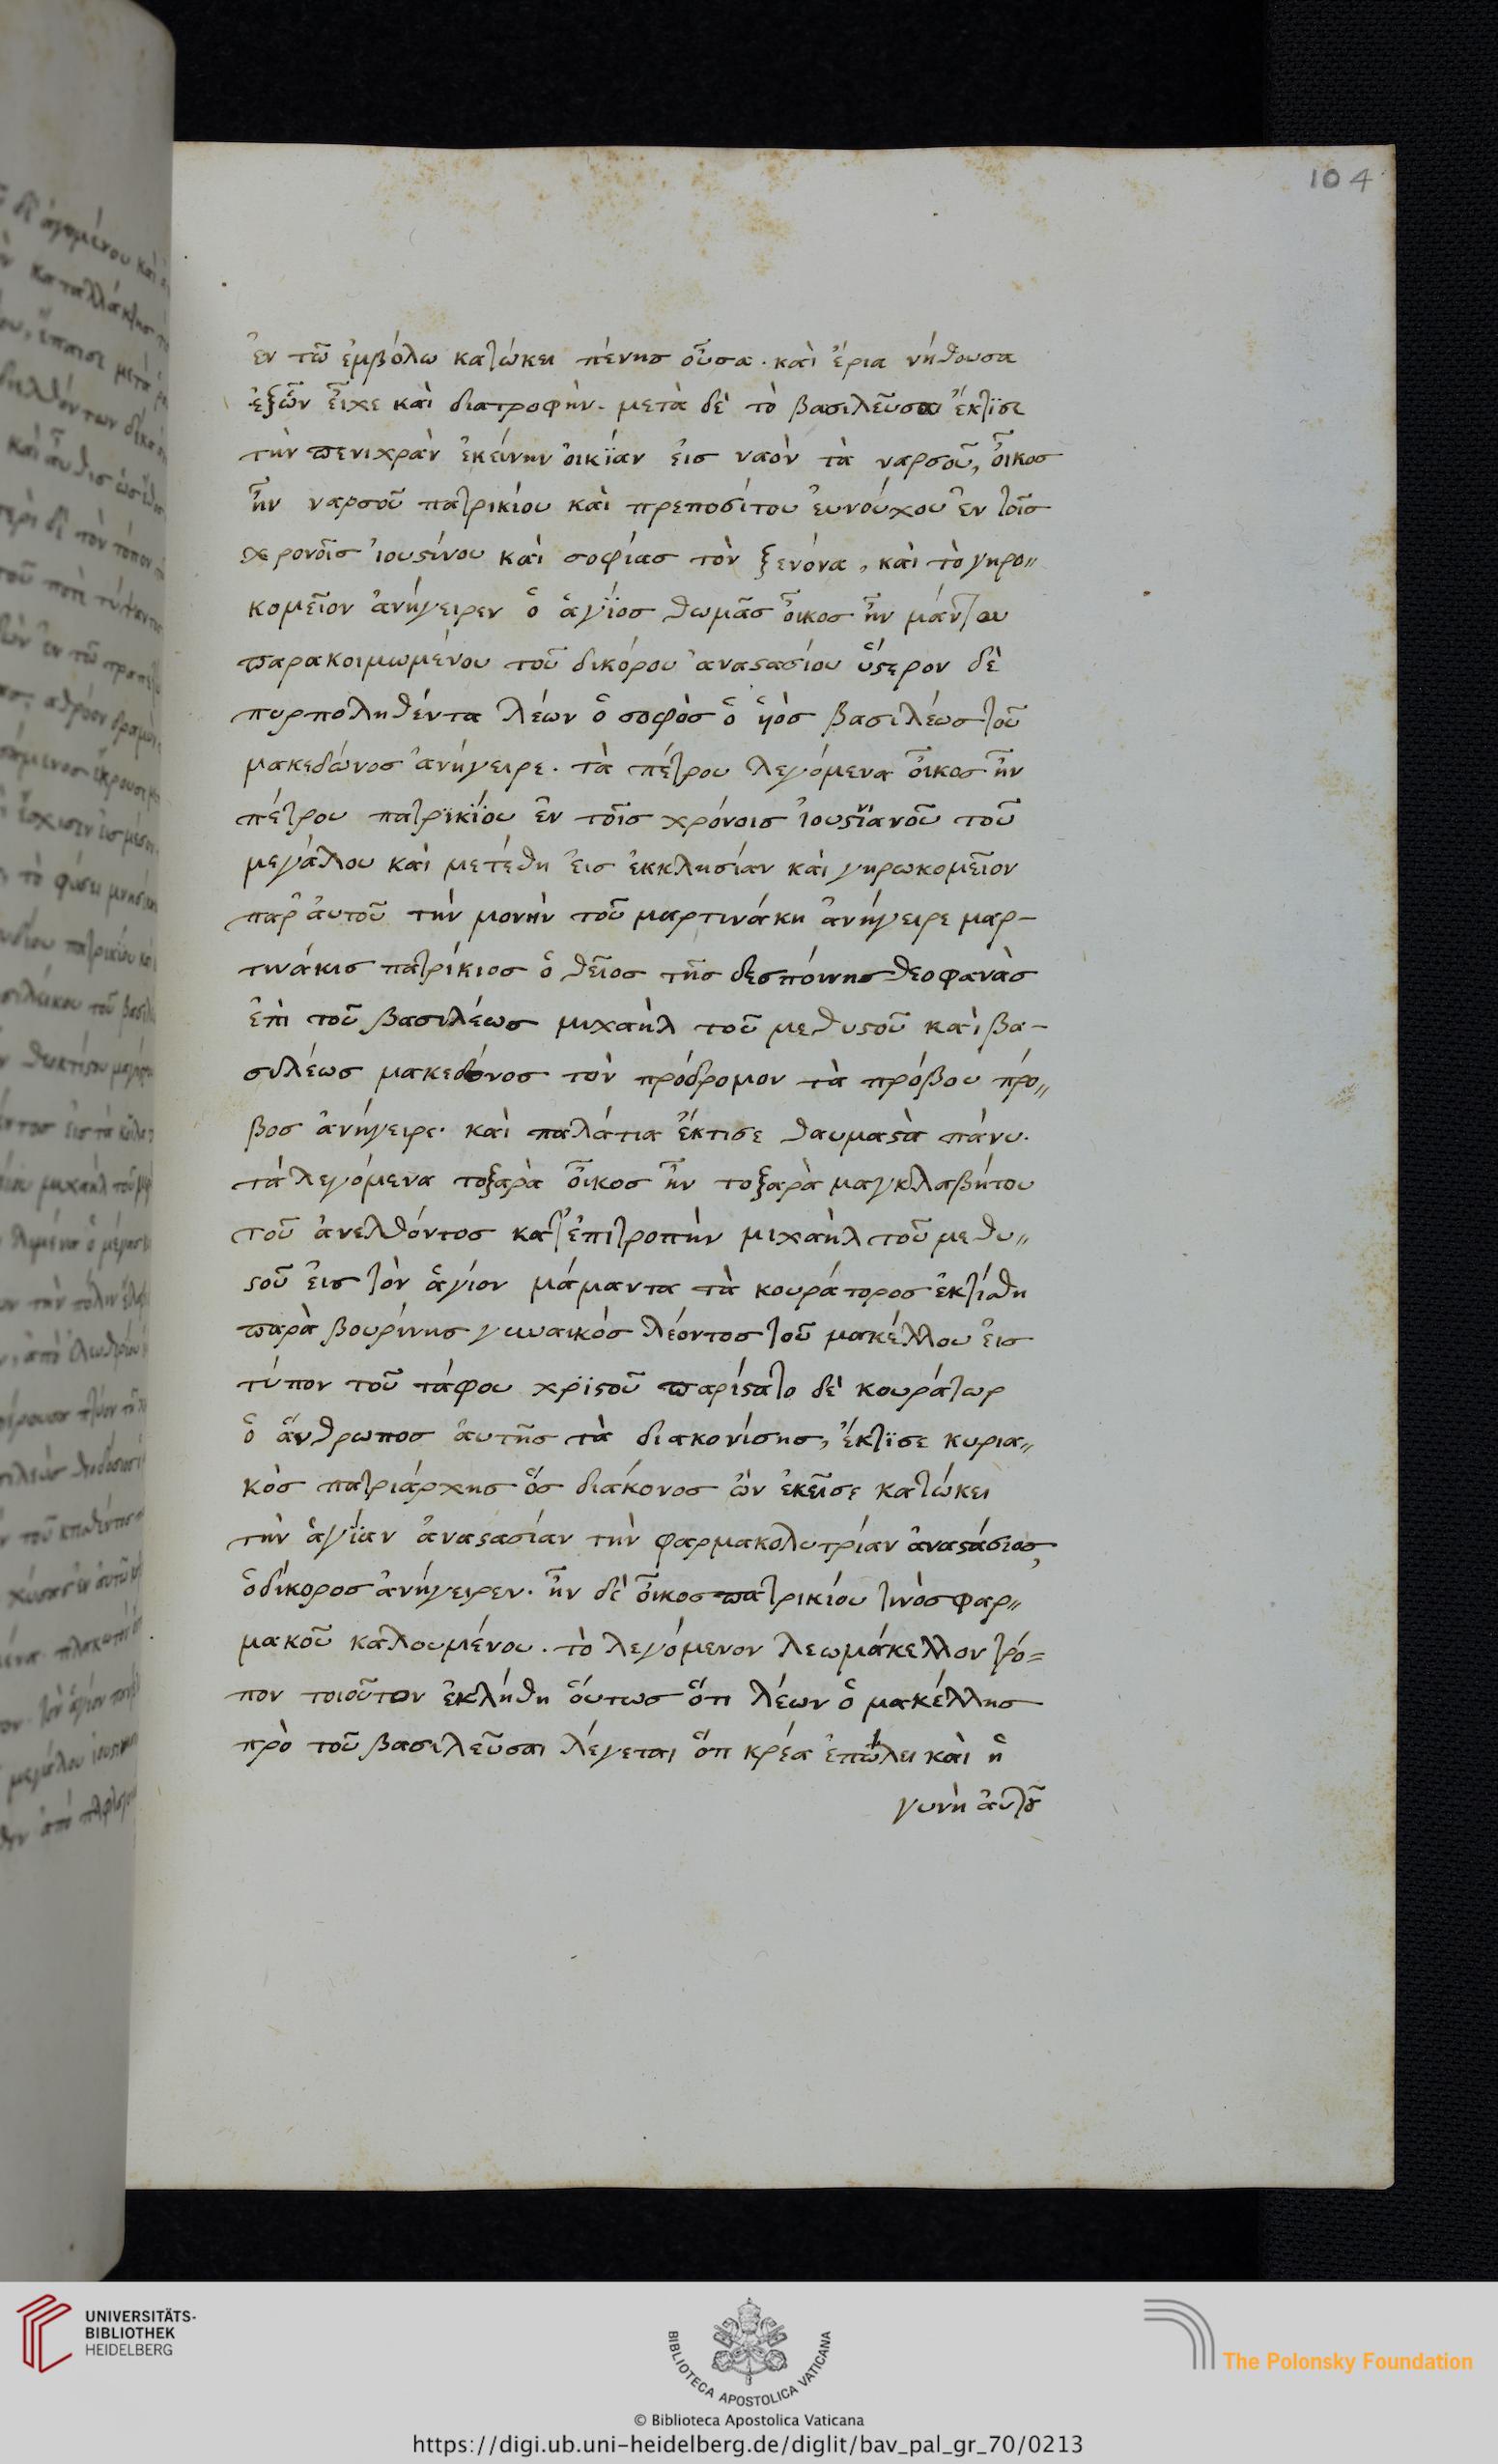 104
ἐν τῶ ἐμβόλω κατώκει πένησ οὖσα. καὶ ἔρια νήθουσα
ἐξῶν εἶχε καὶ διατροφήν. μετὰ δὲ τὸ βασιλεῦσαι ἔκτϊσε
τὴν πενιχρὰν ἐκείνην ὀικϊάν ἐισ ναὸν τὰ ναρσοῦ, ὖἶκοσ
ἦν ναρσοῦ πατρικίου καὶ πρεποσίτου ἐυνούχου ἐν τοῖσ
χερονοῖσ ἰουστίνου καὶ σοφίασ τὸν ξενόνα, καὶ τὸ γηρο〃
κομεῖον ἀνήγειρεν ὁ ἁγϊοσ θωμᾶσ οἶκοσ ἦν μάντου
παρακοιμωμένου τοῦ δικόρου ἀναστασίου ὕστερον δὲ
πυρποληθέντα λέων ὁ σοφὸσ ὁ ὑὸσ βασιλέωσ τοῦ
μακεδώνοσ ἀνήγειρε. τὰ πέτρου λεγόμενα οἶκοσ ἦν
πέτρου πατρϊκϊου ἐν τοῖσ χρόνοισ ἰουστϊνϊανοῦ τοῦ
μεγάλου καὶ μετέθη ἐισ ἐκκλησίαν καὶ γηρωκομεῖον
παρ' ἀυτοῦ τὴν μονὴν τοῦ μαρτινάκη ἀνήγειρε μαρ-
τινάκισ πατρίκιοσ ὁ θεῖοσ τῆσ δεσποίνησ θεοφανὰσ
ἐπὶ τοῦ βασιλέωσ μιχαὴλ τοῦ μεθυστοῦ καὶ βα-
σιλέωσ μακεδόνοσ τὸν πρόδρομον τὰ πρόβου πρό〃
βοσ ἀνήγειρε. καὶ παλάτια ἔκτισε θαυμαστὰ πάνυ.
τὰ λεγόμενα τοξαρὰ οἶκοσ ἦν τοξαρὰ μαγκλαβήτου
τοῦ ἀνελθόντοσ κατ' ἐπιτροπὴν μιχαὴλ τοῦ μεθυ〃
στοῦ ἐισ τὸν ἅγιον μάμαντα τὰ κουράτοροσ ἐκτίσθη
παρὰ βουρίνησ γυναικόσ λέοντοσ τοῦ μακέλλου ἐισ
τύπον τοῦ τάφου χρϊστοῦ παρίστατο δὲ κουράτωρ
ὁ ἄνθρωποσ ἀυτῆσ τὰ διακονίσησ, ἔκτϊσε κυρια〃
κὸσ πατριάρχησ ὅσ διάκονοσ ὢν ἐκεῖσε κατώκει
τὴν ἁγϊαν ἀναστασίαν τὴν φαρμακολυτρίαν ἀναστάσιοσ,
ὁ δίκοροσ ἀνήγειρεν. ἦν δὲ οἶκοσ πατρικίου τινὸσ φαρ〃
μακοῦ καλουμένου. τὸ λεγόμενον λεωμάκελλον τρό=
πον τοιοῦτον ἐκλήθη ὅυτωσ ὅτι λέων ὁ μακέλλησ
πρὸ τοῦ βασιλεῦσαι λέγεται ὅτι κρέα ἐπώλει καὶ ἡ
γυνὴ ἀυτοῦ
UNIVERSITÄTS-
BIBLIOTHEK
HEIDELBERG
BIBLIOTECA APOSTOLICA VATICANA
The Polonsky Foundation
© Biblioteca Apostolica Vaticana
https://digi.ub.uni-heidelberg.de/diglit/bav_pal_gr_70/0213